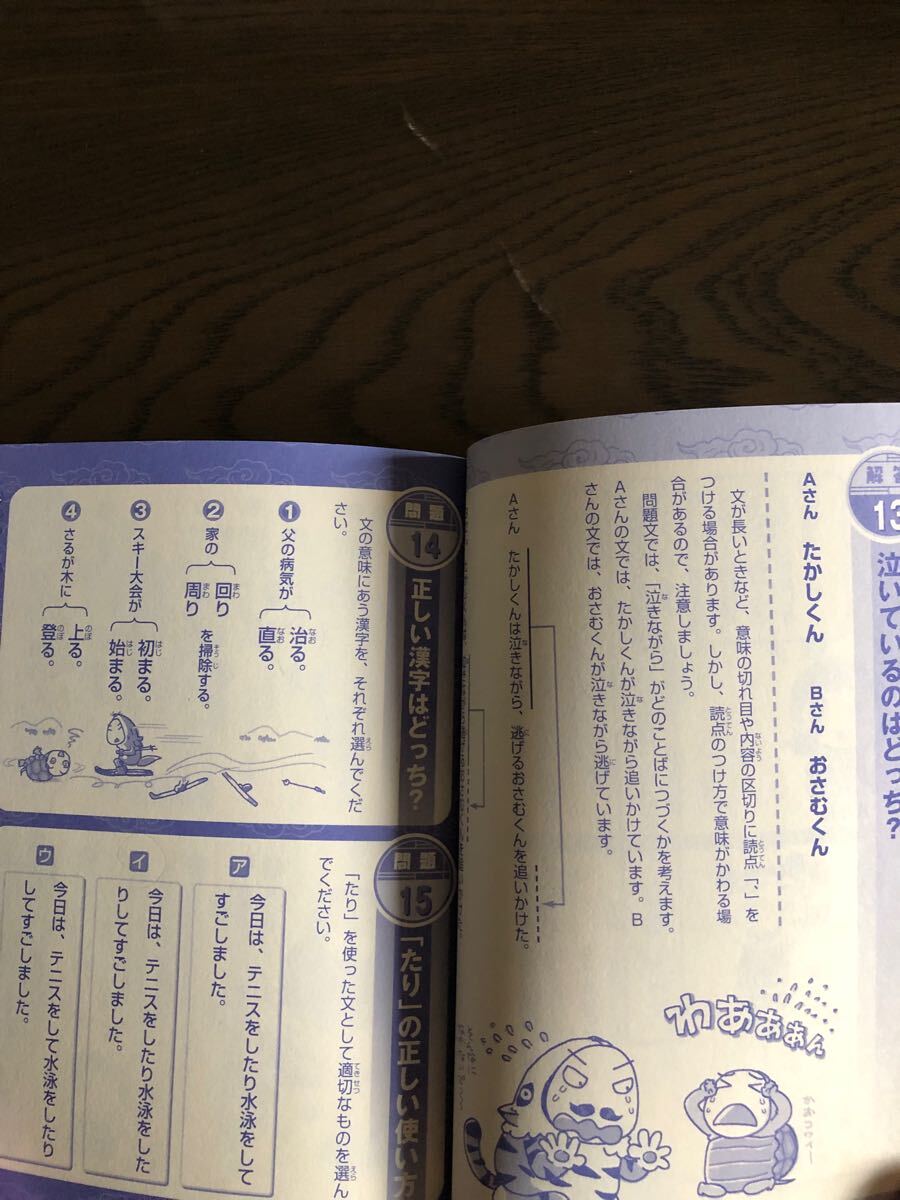 解答
13
泣いているのはどっち？
Aさん たかしくん Bさん おさむくん
文が長いときなど、意味の切れ目や内容の区切りに読点「、」を
つける場合があります。しかし、読点のつけ方で意味がかわる場
合があるので、注意しましょう。
問題文では、「泣きながら」がどのことばにつづくかを考えます。
Aさんの文では、たかしくんが泣きながら追いかけています。B
さんの文では、おさむくんが泣きながら逃げています。
Aさん たかしくんは泣きながら、逃げるおさむくんを追いかけた。
わあぁぁん
問題
14
正しい漢字はどっち？
文の意味にあう漢字を、それぞれ選んでくだ
さい。
❶ 父の病気が 治る。 直る。
❷ 家の 回り 周り を掃除する。
❸ スキー大会が 初まる。 始まる。
❹ さるが木に 上る。 登る。
問題
15
「たり」の正しい使い方
「たり」を使った文として適切なものを選ん
でください。
ア 今日は、テニスをしたり水泳をして
すごしました。
イ 今日は、テニスをしたり水泳をした
りしてすごしました。
ウ 今日は、テニスをして水泳をしたり
してすごしました。